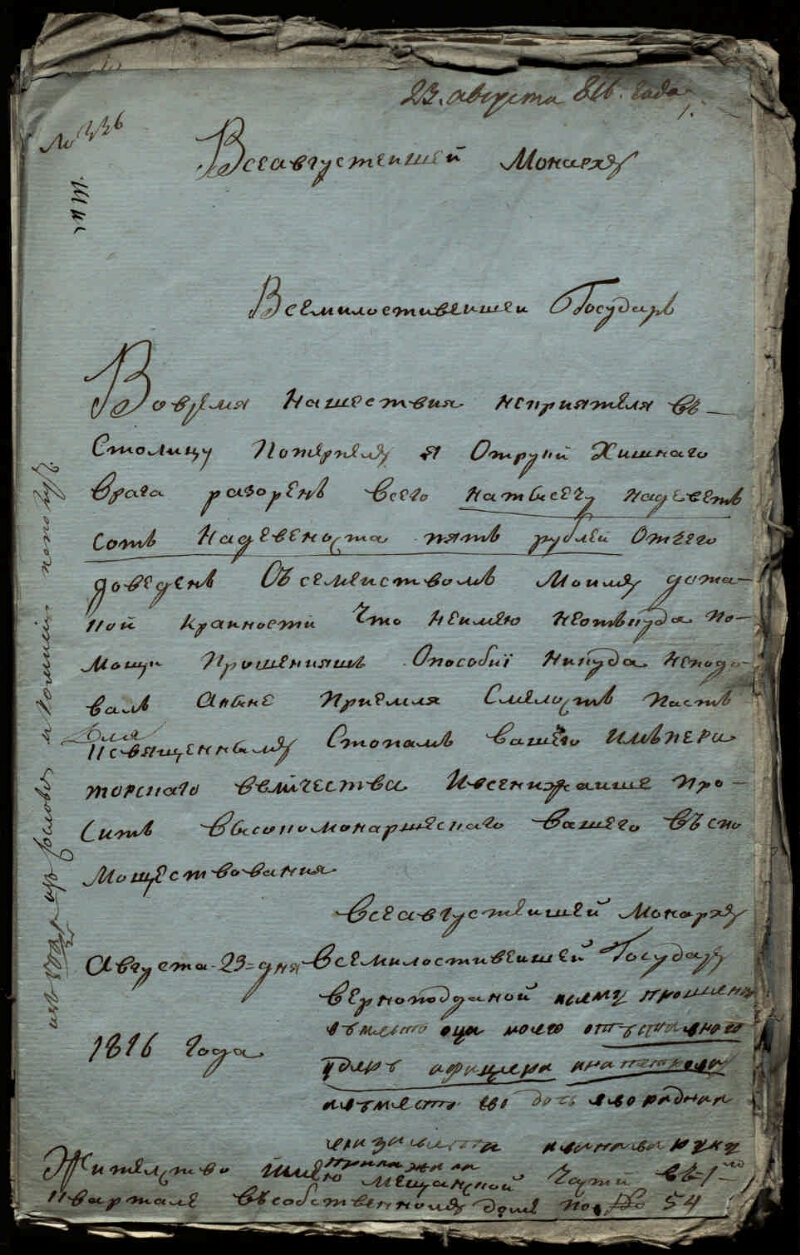 23. августа 816. года
1.
№ 336
Всеавгустеишей Монархъ
Всемилостивеишеи Государь
Вовремя нашествия неприятеля въ
Столицу Потерпелъ я Отруки Хишнаго
врага разоренъ всего натысечу надеветь
сотъ надевеноста пять рублеи Отчего
доведенъ Съсемеиствомъ Моимъ дота-
кой краиности Что неимею неоткуда по-
мощи Прошенияшъ Опособiї никуда неподо
валъ Аныне Приемля Смелость пасть
Для
Къ священнымъ Стопамъ вашего Имъпера
торскаго величества Ивсенижаише про-
Сить высокомонаршескаго вашего въспо
Моществования
Всеавгустеишей Монархъ
Августа 23 дня Всемилостивеишей Государь
верноподданой ксему прошению
въместо оца моего отъставного
1816 Года
ундеръ афицера
въместо ево дочь ево родная
елизавета иванава руку
приложила
Жителство имею Мещанской Части въ 1-мъ
Квартале въсобственномъ доме по № 54